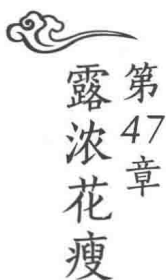 第47章
露浓花瘦